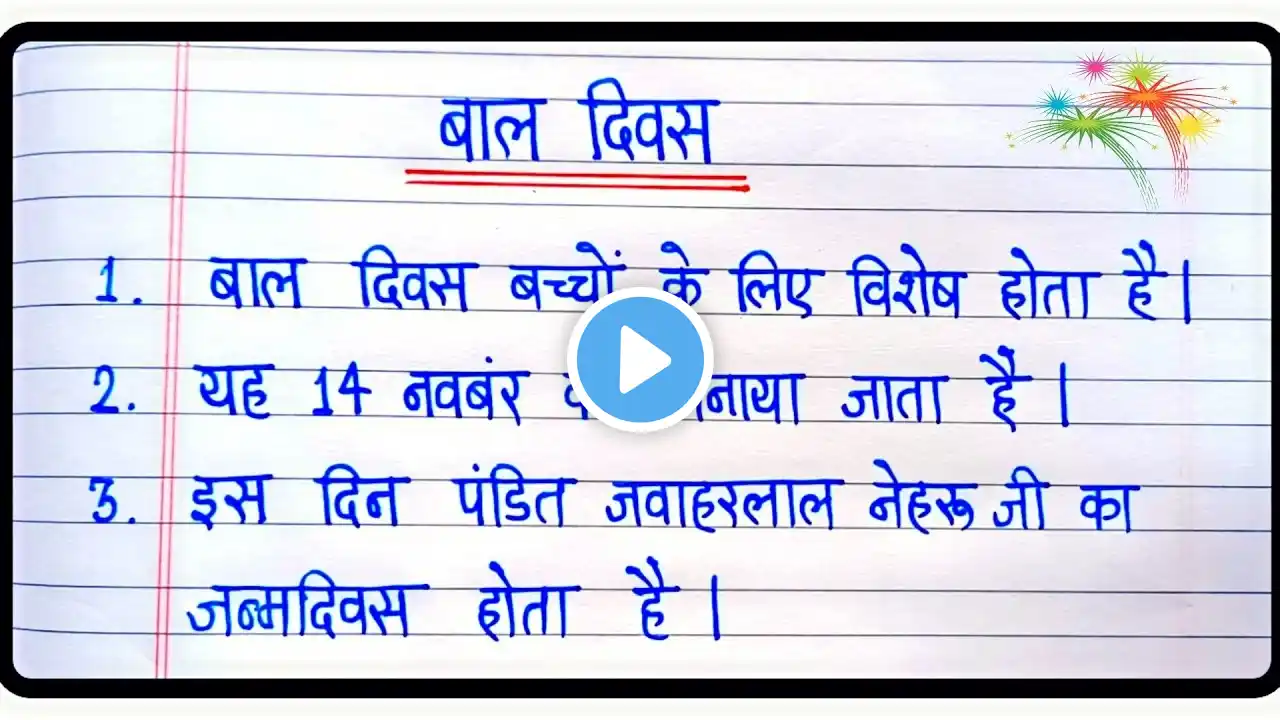 बाल दिवस
1. बाल दिवस बच्चों के लिए विशेष होता है।
2. यह 14 नवबंर मनाया जाता है।
3. इस दिन पंडित जवाहरलाल नेहरू जी का
जन्मदिवस होता है।